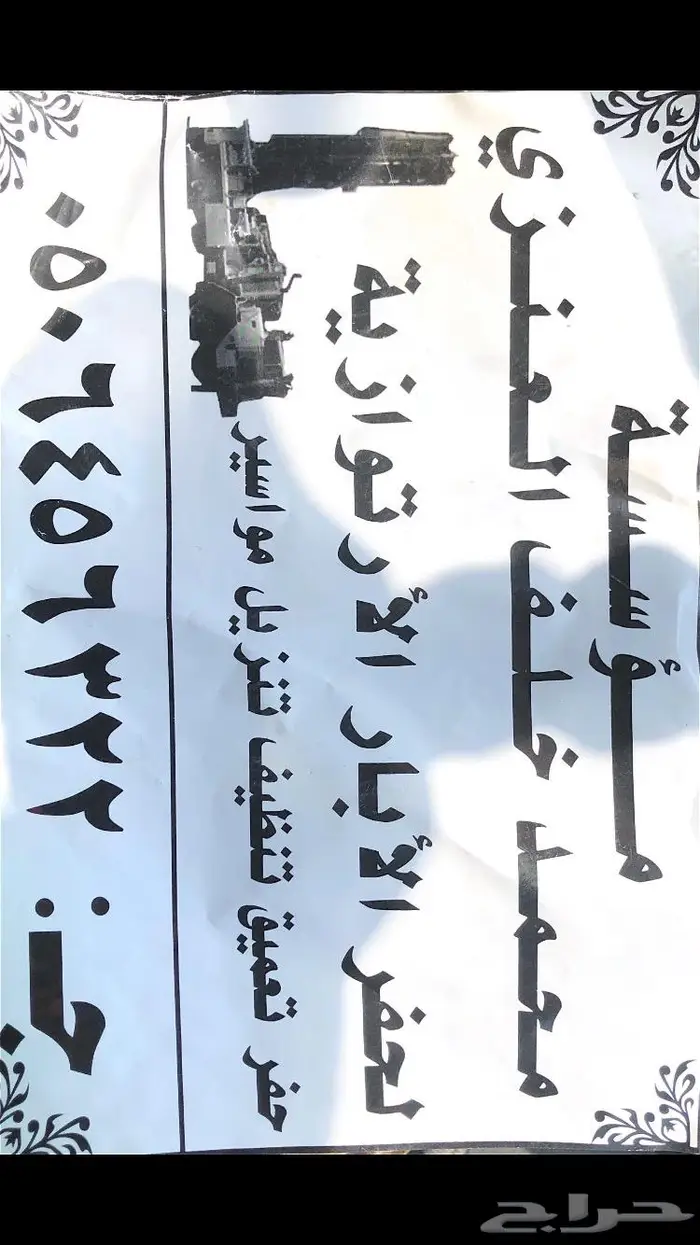 مؤسسة
محمد خلف العنزي
لحفر الأبار الأرتوازية
حفر تعميق تنظيف تنزيل مواسير
ج: ٠٥٠٦٤٥٦٣٢٢
حراج